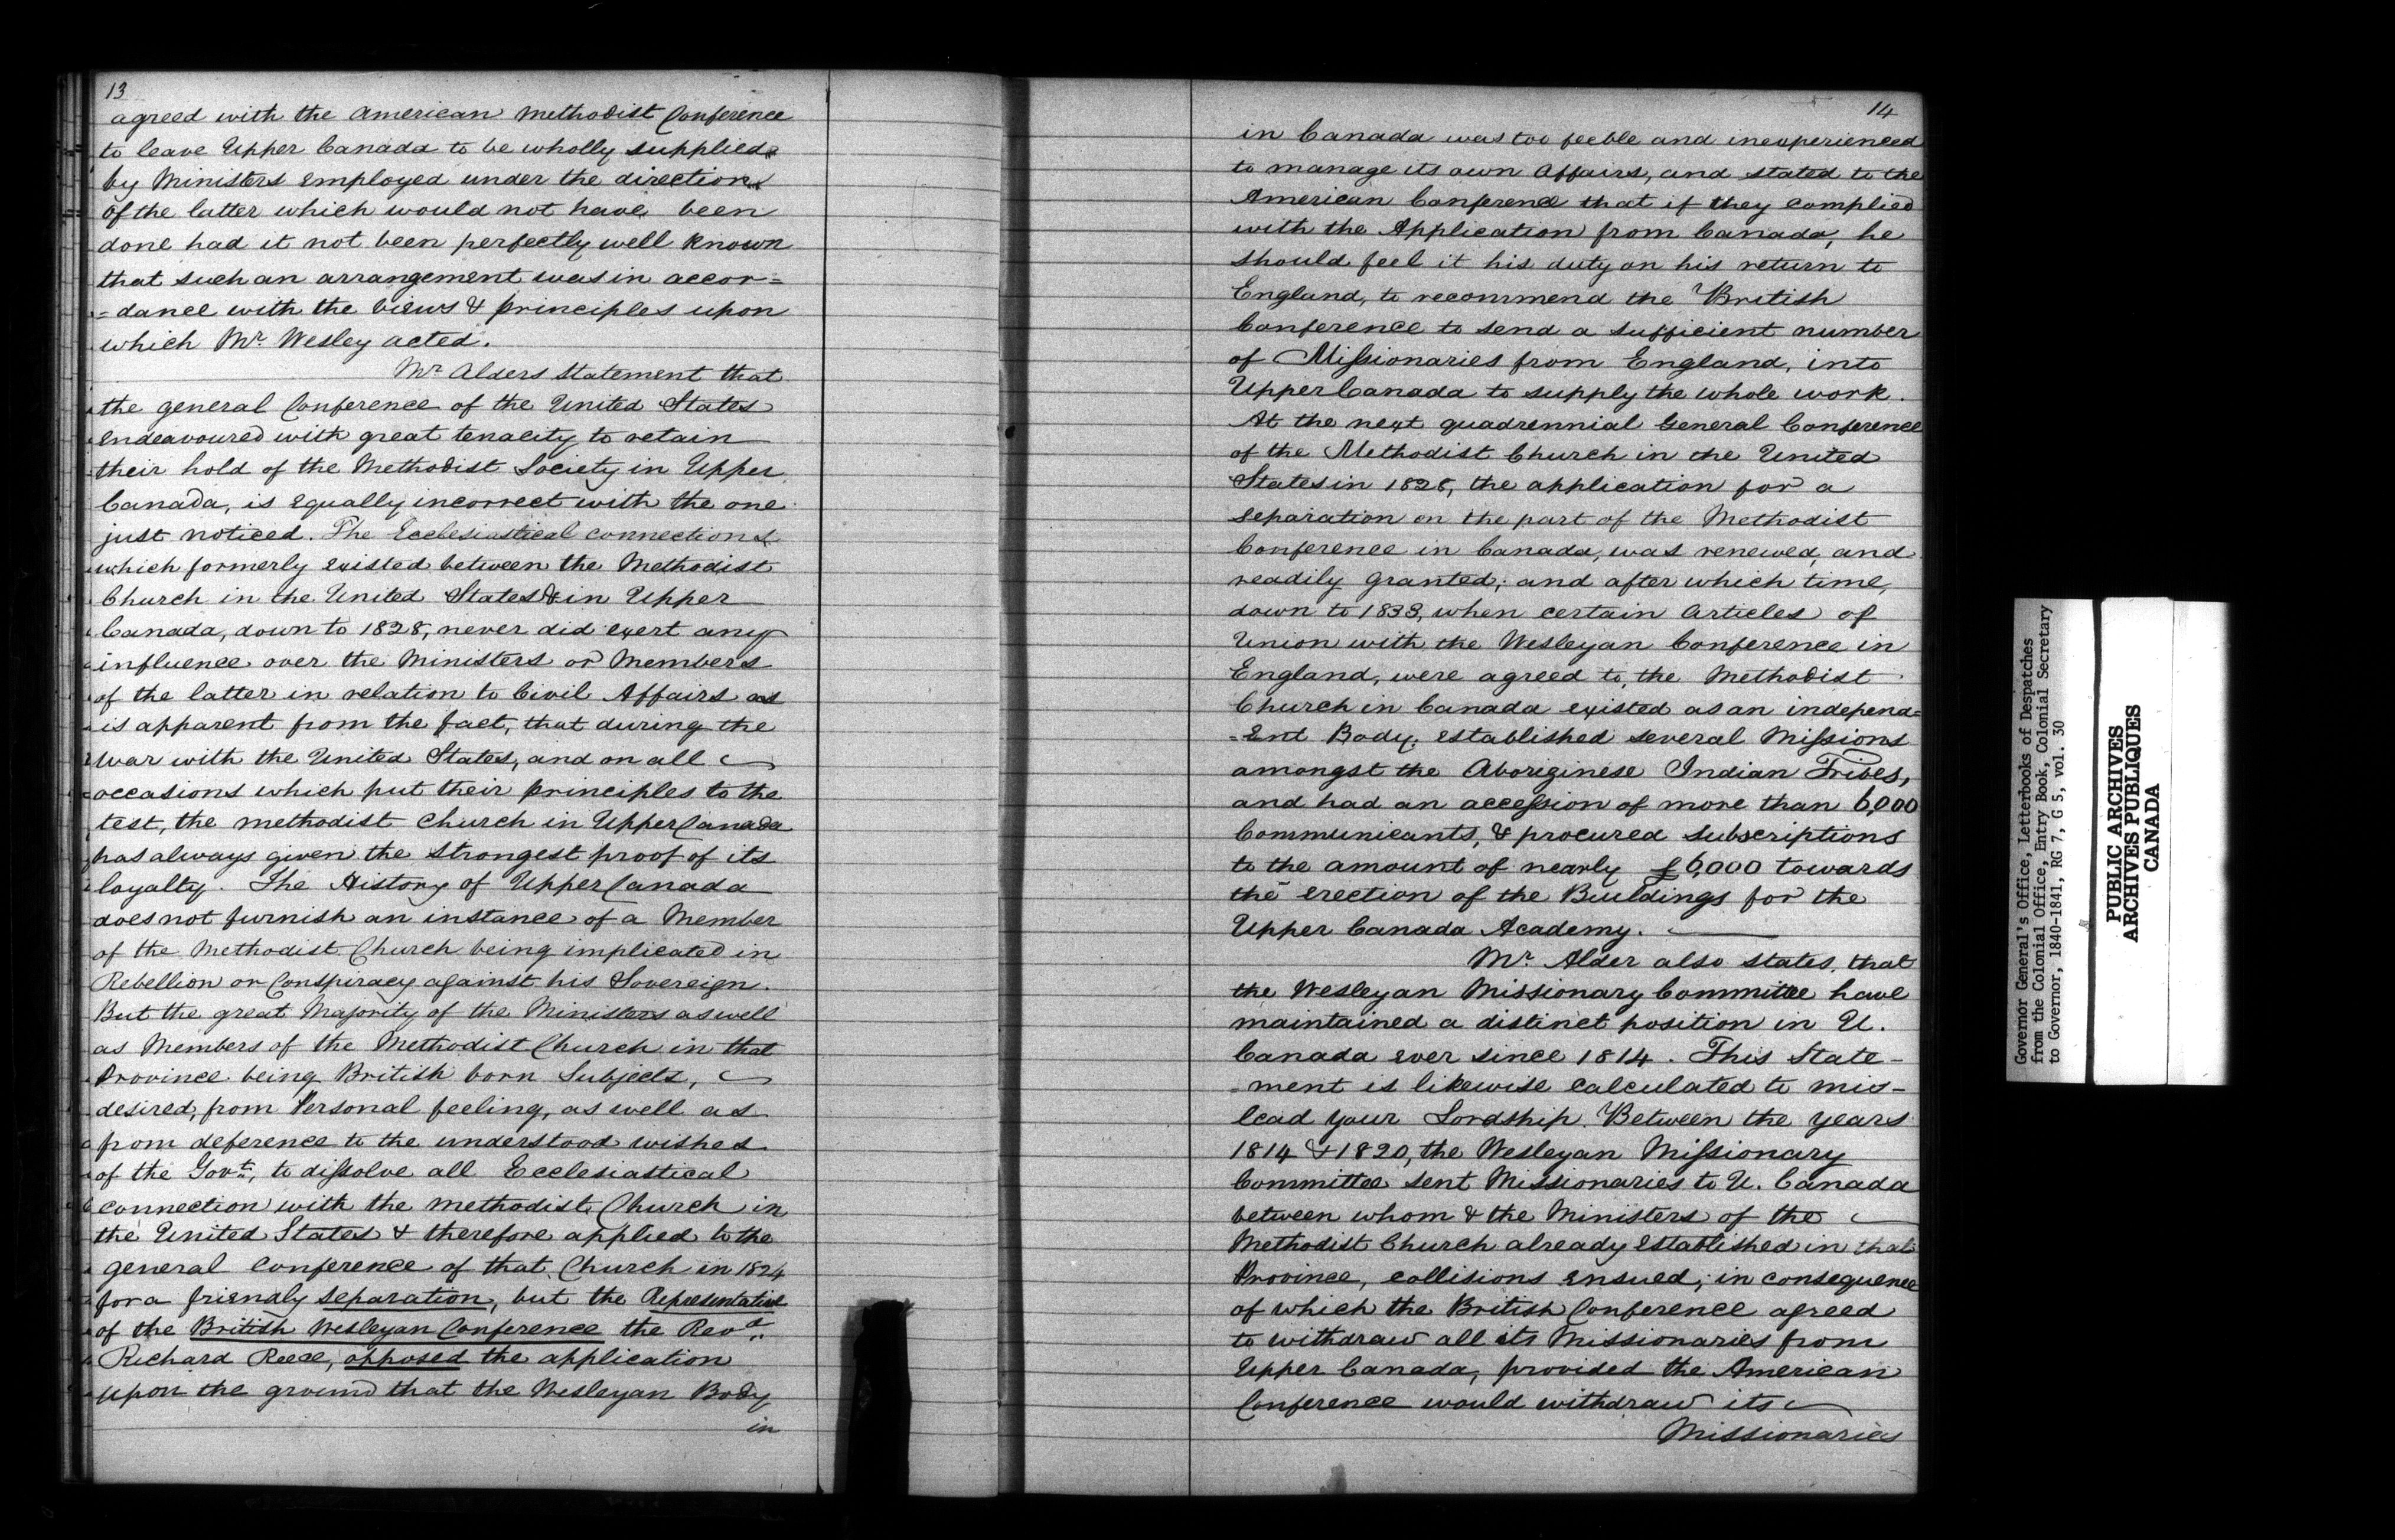 13
agreed with the American Methodist Conference
to leave Upper Canada to be wholly supplied
by Ministers employed under the direction
of the latter which would not have been
done had it not been perfectly well known
that such an arrangement was in accor=
=dance with the views & principles upon
which Mr. Wesley acted.
Mr. Alders statement that
the general Conference of the United States
endeavoured with great tenacity to retain
their hold of the Methodist Society in Upper
Canada, is equally incorrect with the one
just noticed. The Ecclesiastical connections
which formerly existed between the Methodist
Church in the United States & in Upper
Canada, down to 1828, never did exert any
influence over the Ministers or Members
of the latter in relation to Civil Affairs as
is apparent from the fact, that during the
war with the United States, and on all
occasions which put their principles to the
test, the methodist Church in Upper Canada
has always given the strongest proof of its
loyalty. The History of Upper Canada
does not furnish an instance of a Member
of the Methodist Church being implicated in
Rebellion or Conspiracy against his Sovereign.
But the great Majority of the Ministers as well
as Members of the Methodist Church in that
Province being British born Subjects,
desired, from Personal feeling, as well as
from deference to the understood wishes
of the Govt., to dissolve all Ecclesiastical
connection with the methodist Church in
the United States & therefore applied to the
general Conference of that Church in 1824
for a friendly separation, but the Representative
of the British Wesleyan Conference the Revd.
Richard Reece, opposed the application
upon the ground that the Wesleyan Body
in
14
in Canada was too feeble and inexperienced
to manage its own Affairs, and stated to the
American Conference that if they complied
with the Application from Canada, he
should feel it his duty on his return to
England, to recommend the British
Conference to send a sufficient number
of Missionaries from England, into
Upper Canada to supply the whole work.
At the next quadrennial General Conference
of the Methodist Church in the United
States in 1828, the application for a
separation on the part of the Methodist
Conference in Canada, was renewed, and
readily granted; and after which time,
down to 1833, when certain Articles of
Union with the Wesleyan Conference in
England, were agreed to, the Methodist
Church in Canada existed as an independ=
=ent Body; established several Missions
amongst the Aboriginese Indian Tribes,
and had an accession of more than 6,000
Communicants, & procured subscriptions
to the amount of nearly £6,000 towards
the erection of the Buildings for the
Upper Canada Academy.
Mr. Alder also states, that
the Wesleyan Missionary Committee have
maintained a distinct position in U.
Canada ever since 1814. This State-
-ment is likewise calculated to mis-
lead your Lordship. Between the years
1814 & 1820, the Wesleyan Missionary
Committee sent Missionaries to U. Canada
between whom & the Ministers of the
Methodist Church already established in that
Province, collisions ensued; in consequence
of which the British Conference agreed
to withdraw all its Missionaries from
Upper Canada, provided the American
Conference would withdraw its
Missionaries
Governor General's Office, Letterbooks of Despatches
from the Colonial Office, Entry Book, Colonial Secretary
to Governor, 1840-1841, RG 7, G 5, vol. 30
PUBLIC ARCHIVES
ARCHIVES PUBLIQUES
CANADA